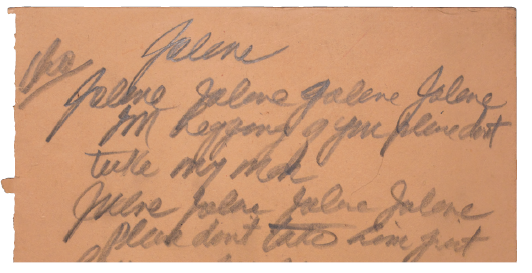 Jolene
Jolene Jolene Jolene Jolene
Im begging of you please dont
take my man
Jolene Jolene Jolene Jolene
Please dont take him just